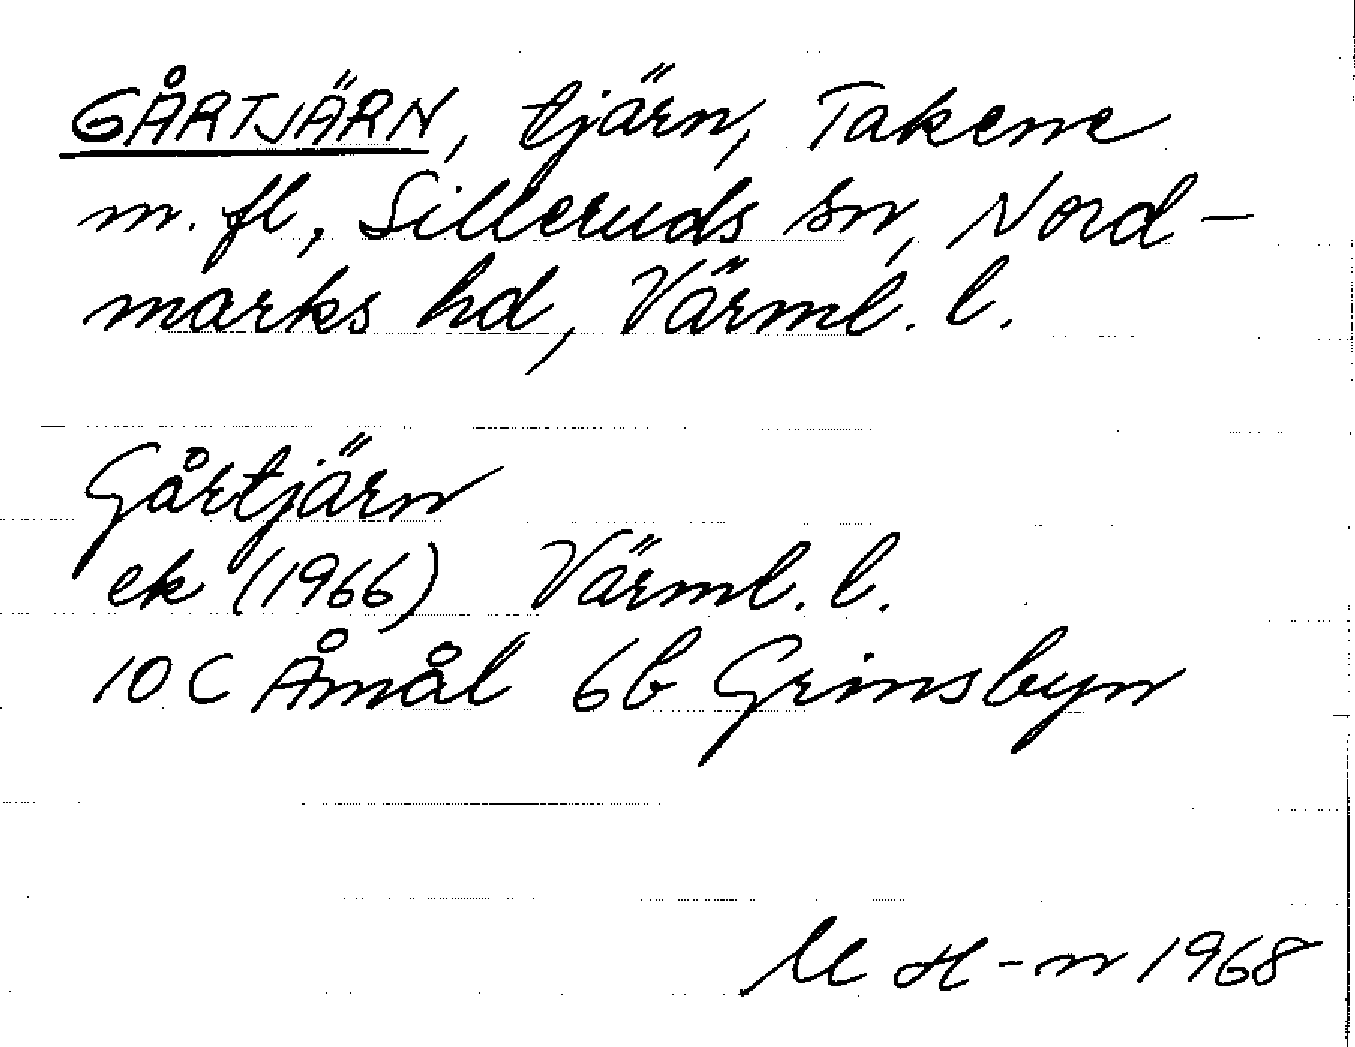 GÅRTJÄRN, tjärn, Takene
m. fl, Silleruds sn, Nord-
marks hd, Värml. l.
Gårtjärn
ek (1966) Värml. l.
10 C Åmål 6b Grinsbyn
M H-n 1968